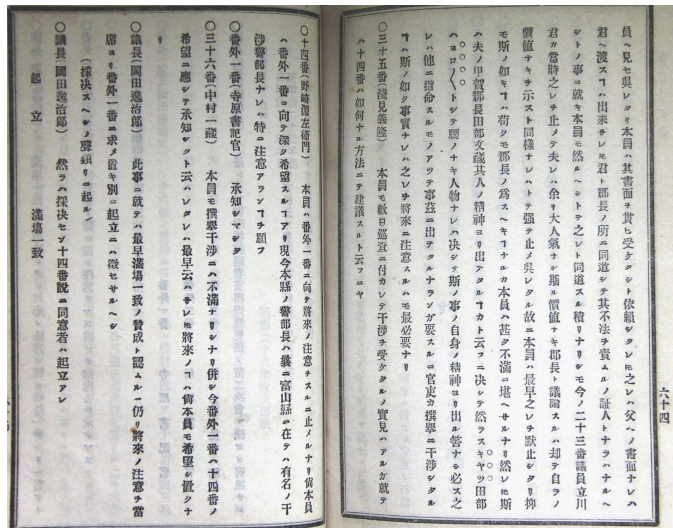 六十四
員ヘ見セ呉レタリ本員ハ其書面ヲ貰ヒ受ケタシト依頼シタレモ之レハ父ヘノ書面ナレハ
君ヘ渡スヿハ出来サレモ君ト郡長ノ所ニ同道シテ其不法ヲ責ムルノ証人トナラハナルヘ
シトノ事ニ就キ本員モ然ルヘシトテ之レト同道スル積リナリシモ今ノ二十三番議員立川
君カ當時之レヲ止メテ夫レハ余リ大人氣ナシ斯ル價値ナキ郡長ト議論スルハ却テ自ラノ
價値ナキヲ示スト同様ナレハトテ強テ止メ呉レタル故ニ本員ハ最早之レヲ默止シタリ抑
モ斯ノ如キヿハ苟クモ郡長ノ爲スヘキヿナルカ本員ハ甚タ不滿ニ堪ヘサルナリ然レモ斯
ハ夫ノ甲賀郡長田部文藏其人ノ精神ヨリ出テタルヿカト云フニ决シテ然ラスキヤツ田部
ハヨロ〳〵トシテ腰ノナキ人物ナレハ决シテ斯ノ事ノ自身ノ精神ヨリ出ル筈ナシ必ス之
レハ他ニ指命スルモノアツテ事茲ニ出テタルナランガ要スルニ官吏カ撰擧ニ干渉シタル
ヿハ斯ノ如ク事實ナレハ之レヲ將來ニ注意スルハ最必要ナリ
〇三十五番(淺見義隆) 本員モ數日巡査ニ付カレテ干渉ヲ受ケタルノ實見ハアルガ就テ
ハ十四番ハ如何ナル方法ニテ建議スルト云フニヤ
〇十四番(野崎源左衛門) 本員ハ番外一番ニ向テ將來ノ注意ヲスルニ止メルナリ尚本員
ハ番外一番ニ向テ深ク希望スルヿアリ現今本縣ノ警部長ハ曩ニ富山縣ニ在テハ有名ノ干
渉警部長ナレハ特ニ注意アランヿヲ願フ
〇番外一番(寺原書記官) 承知シマシタ
〇三十六番(中村一藏) 本員モ撰擧干渉ニハ不滿ナリシナリ併シ今番外一番ハ十四番ノ
希望ニ應シテ承知シタト云ハレタレハ最早云ハサレモ將來ノヿハ尚本員モ希望シ置クナ
リ
〇議長(岡田逸治郎) 此事ニ就テハ最早滿塲一致ノ賛成ト認ムル仍リ將來ノ注意ヲ當
席ヨリ番外一番ニ求メ置キ別ニ起立ニハ徴セサルヘシ
(採决スヘシノ聲頻リニ起ル)
〇議長(岡田逸治郎) 然ラハ採决セン十四番説ニ同意者ハ起立アレ
起立 滿塲一致